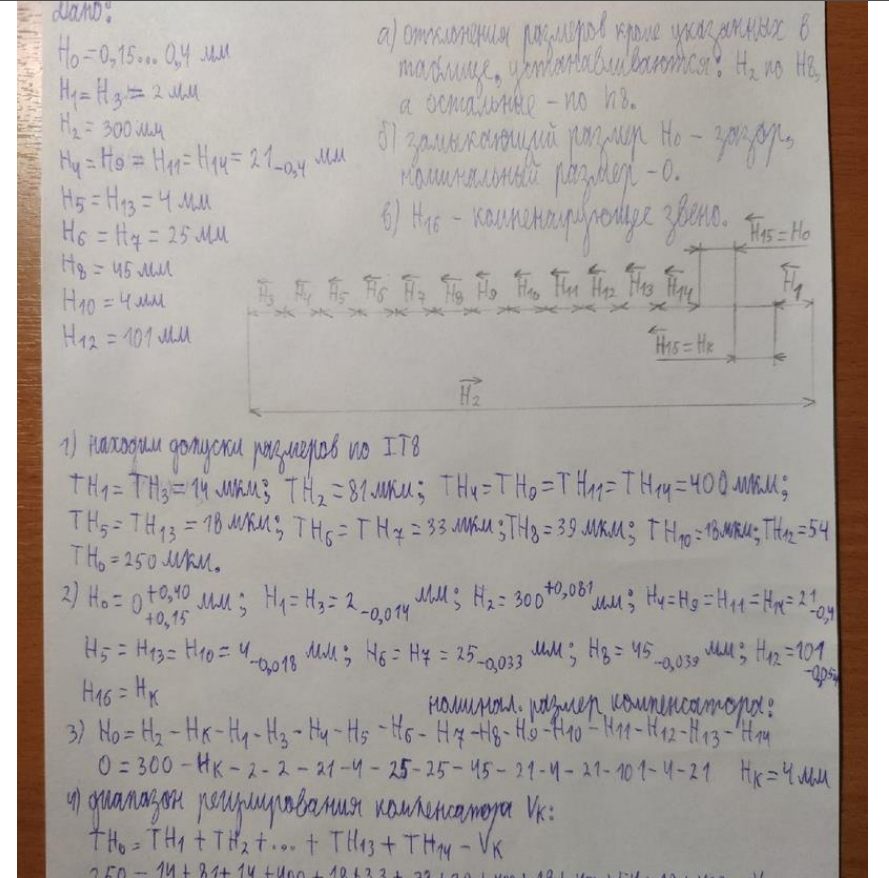 Дано:
H₀=0,15...0,4 мм
H₁=H₃=2 мм
H₂=300 мм
H₄=H₉=H₁₁=H₁₄=21₋₀,₄ мм
H₅=H₁₃=4 мм
H₆=H₇=25 мм
H₈=45 мм
H₁₀=4 мм
H₁₂=101 мм
а) отклонения размеров кроме указанных в
таблице, устанавливаются: H₂ по H8,
а остальные - по h8.
б) замыкающий размер H₀ - зазор,
номинальный размер - 0.
в) H₁₆ - компенсирующее звено.
H₁₅=H₀
H₃ H₄ H₅ H₆ H₇ H₈ H₉ H₁₀ H₁₁ H₁₂ H₁₃ H₁₄ H₁
H₁₅=Hк
H₂
1) находим допуски размеров по IT8
TH₁=TH₃=14 мкм; TH₂=81 мкм; TH₄=TH₉=TH₁₁=TH₁₄=400 мкм;
TH₅=TH₁₃=18 мкм; TH₆=TH₇=33 мкм; TH₈=39 мкм; TH₁₀=18 мкм; TH₁₂=54
TH₀=250 мкм.
2) H₀=0 +0,40 +0,15 мм; H₁=H₃=2 -0,014 мм; H₂=300 +0,081 мм; H₄=H₉=H₁₁=H₁₄=21 -0,4
H₅=H₁₃=H₁₀=4 -0,018 мм; H₆=H₇=25 -0,033 мм; H₈=45 -0,039 мм; H₁₂=101 -0,054
H₁₆=Hк
номинал. размер компенсатора:
3) H₀=H₂-Hк-H₁-H₃-H₄-H₅-H₆-H₇-H₈-H₉-H₁₀-H₁₁-H₁₂-H₁₃-H₁₄
0=300-Hк-2-2-21-4-25-25-45-21-4-21-101-4-21 Hк=4 мм
4) диапазон регулирования компенсатора Vк:
TH₀=TH₁+TH₂+...+TH₁₃+TH₁₄-Vк